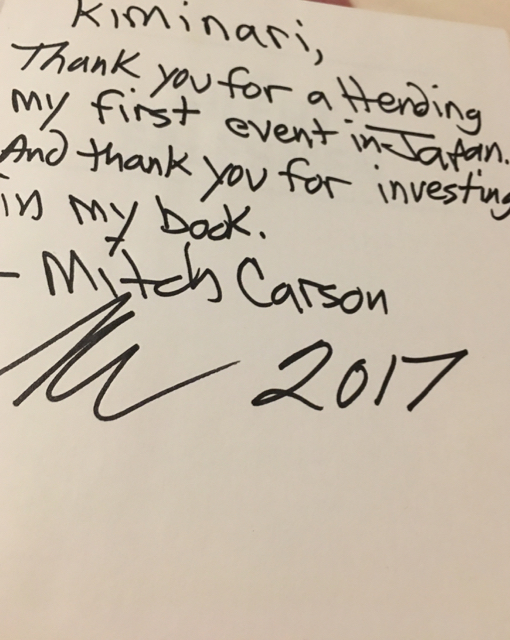 Kiminari,
Thank you for attending
my first event in Japan.
And thank you for investing
in my book.
- Mitch Carson
2017